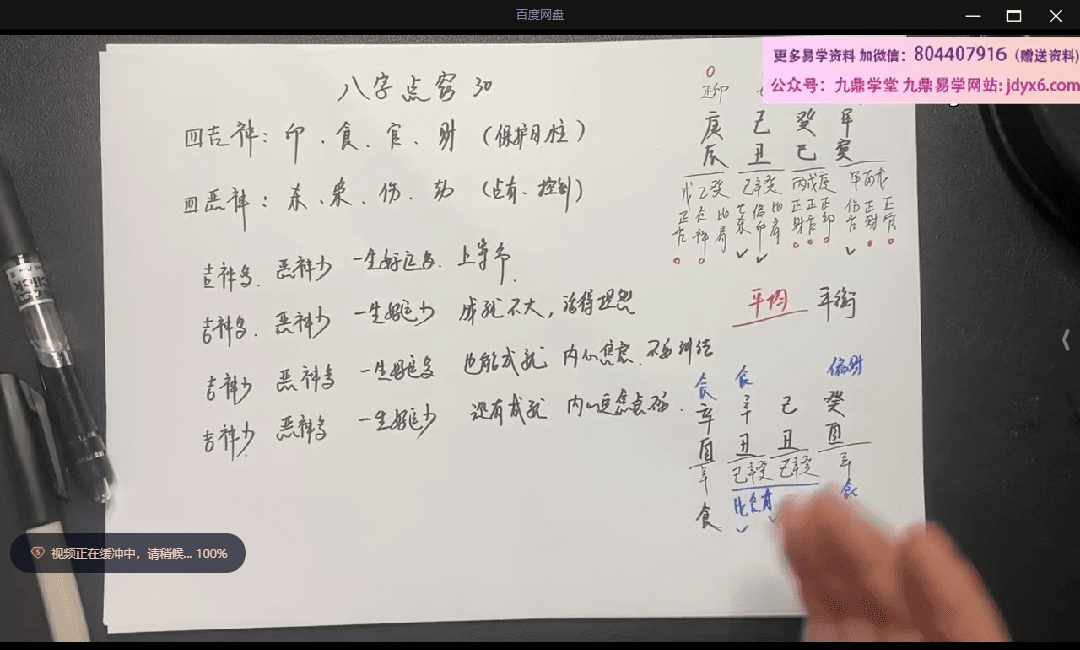 百度网盘
更多易学资料 加微信：804407916（赠送资料)
公众号：九鼎学堂 九鼎易学网站: jdyx6.com
八字点窍 30
四吉神：印、食、官、财（保护日柱）
四恶神：杀、枭、伤、劫（占有、控制）
吉神多. 恶神少 一生好运多. 上等命.
吉神多. 恶神少 一生好运少 成就不大，活得理想
吉神少 恶神多 一生好运多 也能成就 内心焦虑.
吉神少 恶神多 一生好运少 还有成就
庚 己 癸 甲
辰 丑 巳 寅
戊乙癸 己辛癸 丙戊庚 甲丙戊
平均 平衡
食 食 偏财
辛 辛 己 癸
酉 丑 丑 酉
辛 己辛癸 己辛癸 辛
食 食
视频正在缓冲中，请稍候... 100%